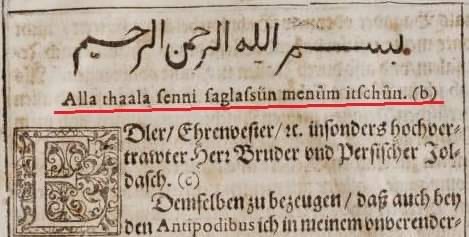 بسم الله الرحمن الرحيم
Alla thaala ſenni ſaglaſsün menüm itſchün. (b)
EDler/ Ehrenveſter/ ꝛc. inſonders hochver-
trawter Herr Bruder vnd Perſiſcher Jol-
daſch. (c)
Demſelben zu bezeugen/ daß auch bey
den Antipodibus ich in meinem vnverender-